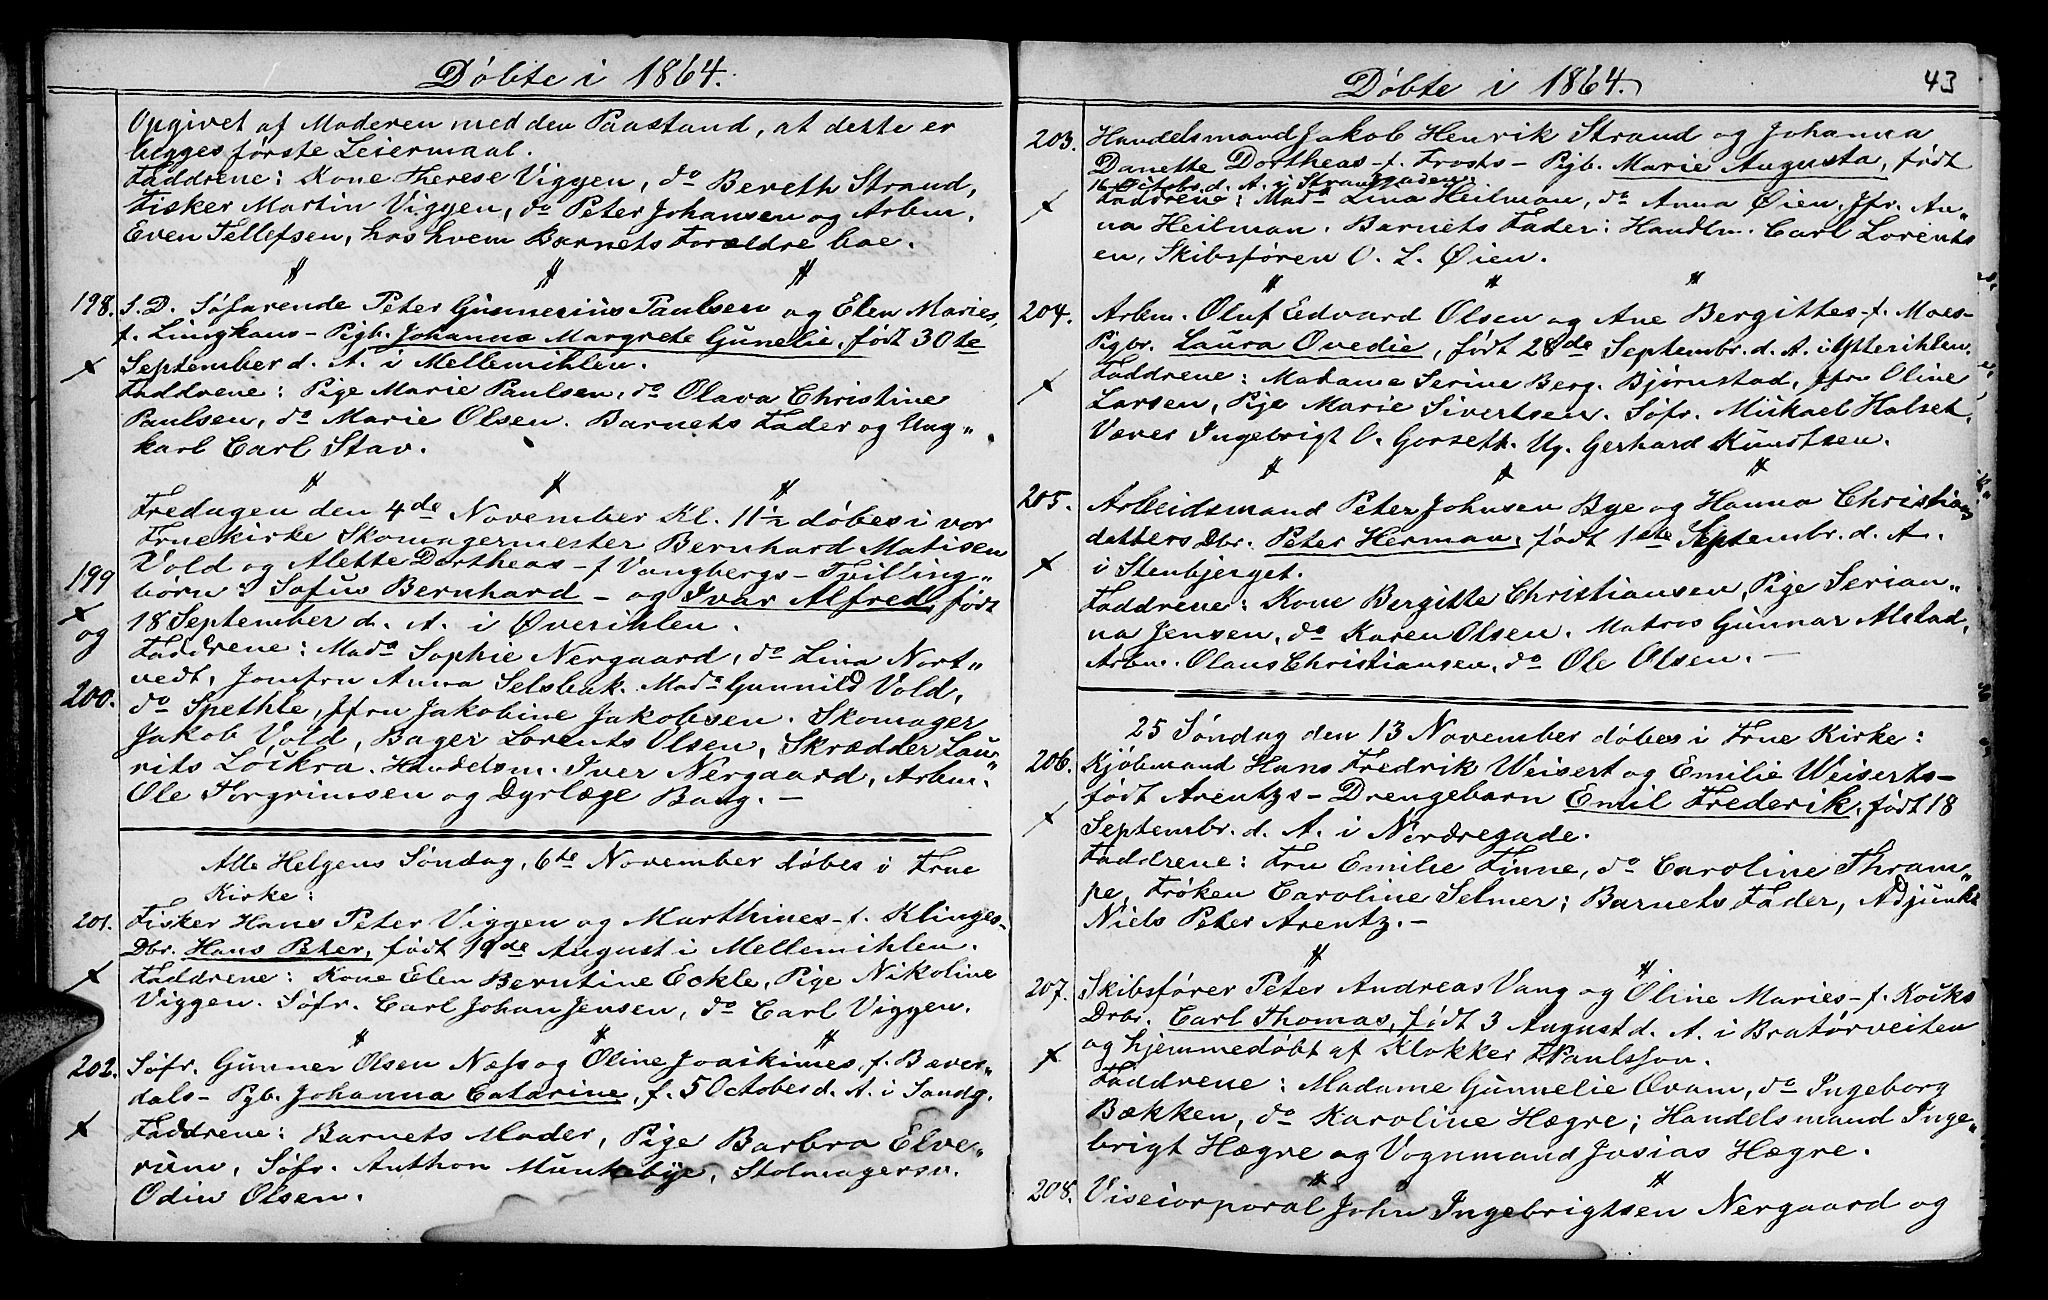 Døbte i 1864.
Opgivet af Moderen med den Paastand, at dette er
begges første Leiermaal.
Faddrene: Kone Therese Viggen, do Bereth Strand,
Fisker Martin Viggen, do Peter Johansen og Arbm.
Even Tellefsen, hos hvem Barnets Forældre boe.
198. S. D. Søfarende Peter Gunnerius Paulsen og Elen Maries,
f. Lingkaus - Pigb. Johanna Margrete Gunelie, født 30te
September d. A. i Mellemihlen.
Faddrene: Pige Marie Paulsen, do Olava Christine
Paulsen, do Marie Olsen. Barnets Fader og Ung„
karl Carl Stav.
Fredagen den 4de November Kl. 11½ døbes i vor
Fruekirke Skomagermester Bernhard Matisen
Vold og Alette Dortheas - f Vangbergs - Tvilling„
199 børn: Sofus Bernhard - og Ivar Alfred, født
og 18 September d. A. i Øverihlen.
Faddrene: Mad. Sophie Nergaard, do Lina Nort„
200. vedt, Jomfru Anna Selsbak. Mad. Gunnild Vold,
do Spethle, Jfru Jakobine Jakobsen. Skomager
Jakob Vold, Bager Lorents Olsen, Skrædder Lau„
rits Löckra. Handelsm. Iver Nergaard, Arbm.
Ole Torgrimsen og Dyrlæge Bang. -
Alle Helgens Søndag, 6te November døbes i Frue
Kirke:
201. Fisker Hans Peter Viggen og Marthines - f. Klinges-
Dbr. Hans Peter, født 19de August i Mellemihlen.
Faddrene: Kone Elen Berntine Eckle, Pige Nikoline
Viggen. Søfr. Carl Johan Jensen, do Carl Viggen.
202. Søfr. Gunner Olsen Næss og Oline Joackimes, f. Bæver„
dals - Pgb. Johanna Catarine, f. 5 October d. A. i Sandg.
Faddrene: Barnets Moder, Pige Barbra Elve„
rum, Søfr. Anthon Munkebye, Stolmagersv.
Odin Olsen.
Døbte i 1864. 43
203. Handelsmand Jakob Henrik Strand og Johanna
Danette Dortheas - f. Frosts - Pigb. Marie Augusta, født
16 Octobr. d. A. i Strandgaden.
Faddrene: Mad. Lina Heilman, do Anna Øien, Jfr. An„
na Heilman. Barnets Fader: Handlm. Carl Lorents
en, Skibsføren O. L. Øien.
204. Arbm. Oluf Edvard Olsen og Ane Bergittes - f. Moes-
Pigbr. Laura Ovedie, født 28de Septembr. d. A. i Ytterihlen.
Faddrene: Madame Serine Berg. Bjørnstad, Jfru Oline
Larsen, Pije Marie Sivertsen. Søfr. Mickael Halset.
Væver Ingebrigt O. Gorseth. Ug. Gerhard Knudtsen.
205. Arbeidsmand Peter Johnsen Bye og Hanna Christians
datters Dbr. Peter Herman, født 1ste Septembr. d. A.
i Stenbjerget.
Faddrene: Kone Bergitte Christiansen, Pige Serian„
na Jensen, do Karen Olsen. Matros Gunnar Alstad,
Arbm. Olaus Christiansen, do Ole Olsen. -
25 Søndag den 13 November døbes i Frue Kirke:
206. Kjøbmand Hans Fredrik Weisert og Emilie Weiserts-
født Arentzs - Drengebarn Emil Frederik, født 18
Septembr. d. A. i Nordregade.
Faddrene: Fru Emilie Finne, do Caroline Thram„
pe, Frøken Caroline Selmer; Barnets Fader, Adjunkt
Niels Peter Arentz. -
207. Skibsfører Peter Andreas Vang og Oline Maries - f. Kocks
Drbr. Carl Thomas, født 3 August d. A. i Bratørveiten
og hjemmedøbt af Klokker Paulsson.
Faddrene: Madame Gunnelie Qvam, do Ingeborg
Bækken, do Karoline Hægre; Handelsmand Inge„
brigt Hægre og Vognmand Josias Hægre.
208. Visecorporal John Ingebrigtsen Nergaard og